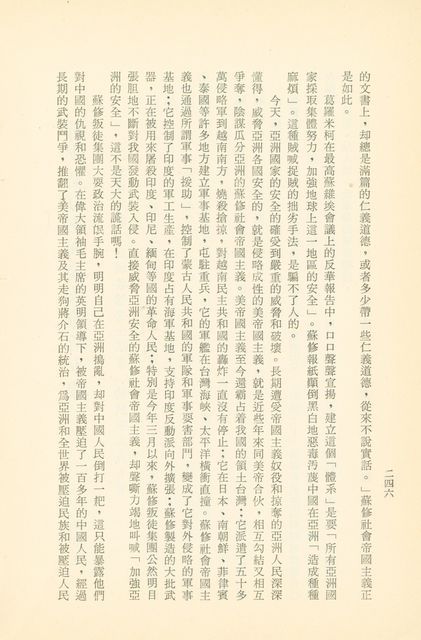 二四六
的文書上，却總是滿篇的仁義道德，或者多少帶一些仁義道德，從來不說實話。」蘇修社會帝國主義正
是如此。
葛羅米柯在最高蘇維埃會議上的反華報告中，口口聲聲宣揚，建立這個「體系」是要「所有亞洲國
家採取集體努力，加強地球上這一地區的安全」。蘇修報紙顛倒黑白地惡毒汚蔑中國在亞洲「造成種種
麻煩」。這種賊喊捉賊的拙劣手法，是騙不了人的。
今天，亞洲國家的安全的確受到嚴重的威脅和破壞。長期遭受帝國主義奴役和掠奪的亞洲人民深深
懂得，威脅亞洲各國安全的，就是侵略成性的美帝國主義，就是近些年來同美帝合伙，相互勾結又相互
爭奪，陰謀瓜分亞洲的蘇修社會帝國主義。美帝國主義至今還霸占着我國的領土台灣；它派遣了五十多
萬侵略軍到越南南方，燒殺搶掠，對越南民主共和國的轟炸一直沒有停止；它在日本、南朝鮮、菲律賓
、泰國等許多地方建立軍事基地，屯駐重兵，它的軍艦在台灣海峽、太平洋橫衝直撞。蘇修社會帝國主
義也通過所謂軍事「援助」，控制了蒙古人民共和國的軍隊和軍事要害部門，變成了它對外侵略的軍事
基地；它控制了印度的軍工生產，在印度占有海軍基地，支持印度反動派向外擴張；蘇修製造的大批武
器，正在被用來屠殺印度、印尼、緬甸等國的革命人民；特別是今年三月以來，蘇修叛徒集團公然明目
張胆地不斷對我國發動武裝入侵。直接威脅亞洲安全的蘇修社會帝國主義，却聲嘶力竭地叫喊「加強亞
洲的安全」，這不是天大的謊話嗎！
蘇修叛徒集團大耍政治流氓手腕，明明自己在亞洲搗亂，却對中國人民倒打一耙，這只能暴露他們
對中國的仇視和恐懼。在偉大領袖毛主席的英明領導下，被帝國主義壓迫了一百多年的中國人民，經過
長期的武裝鬥爭，推翻了美帝國主義及其走狗蔣介石的統治，爲亞洲和全世界被壓迫民族和被壓迫人民